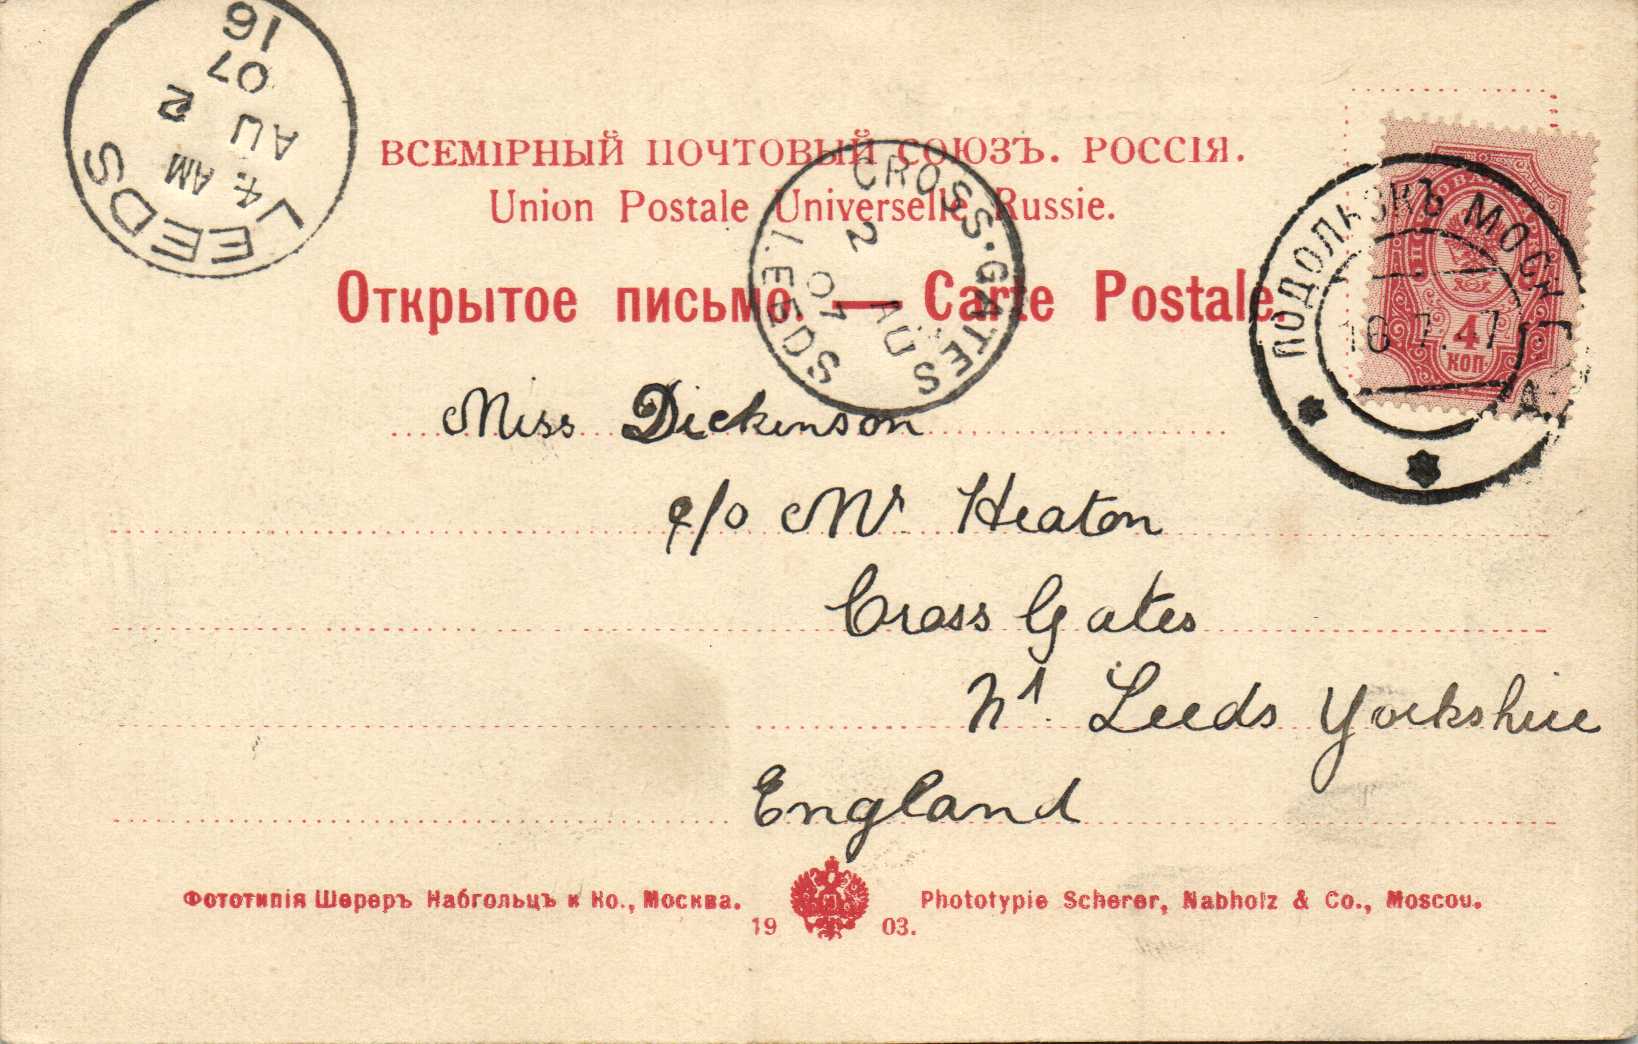 ВСЕМІРНЫЙ ПОЧТОВЫЙ СОЮЗЪ. РОССІЯ.
Union Postale Universelle Russie.
Открытое письмо. — Carte Postale.
LEEDS
4. AM
AU 2
07
16
CROSS·GATES
LEEDS
2 AU
07
ПОДОЛЬСКЪ МОСК. Г.
16.7.07
4
КОП.
Miss Dickinson
c/o Mr Heaton
Cross Gates
Nr. Leeds Yorkshire
England
Фототипія Шереръ Набгольцъ и Ко., Москва.
1903.
Phototypie Scherer, Nabholz & Co., Moscou.